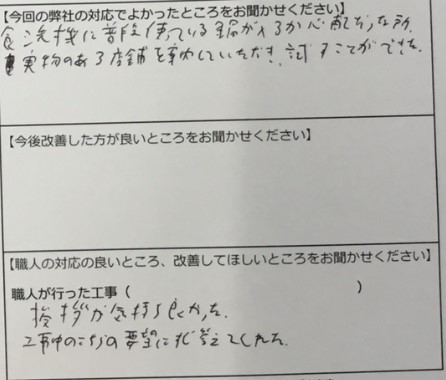 【今回の弊社の対応でよかったところをお聞かせください】
食洗機に普段使っている鍋が入るか心配だった所、
実物のある店舗を案内していただき、試すことができた。
【今後改善した方が良いところをお聞かせください】
【職人の対応の良いところ、改善してほしいところをお聞かせください】
職人が行った工事（　　　）
挨拶が気持ち良かった。
工事中のこちらの要望にも答えてくれた。